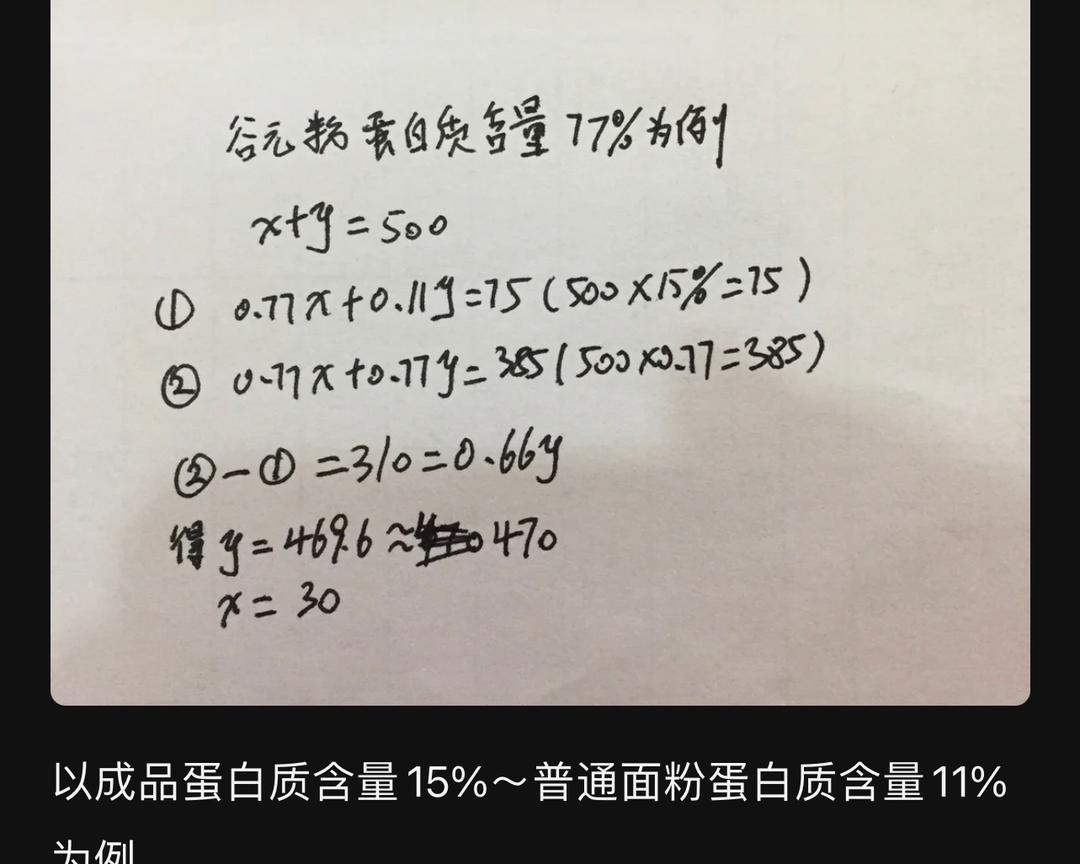 谷元粉蛋白质含量77%为例
x+y=500
① 0.77x+0.11y=75(500×15%=75)
② 0.77x+0.77y=385(500×0.77=385)
②-①=310=0.66y
得 y=469.6≈470
x=30
以成品蛋白质含量15%～普通面粉蛋白质含量11%
为例